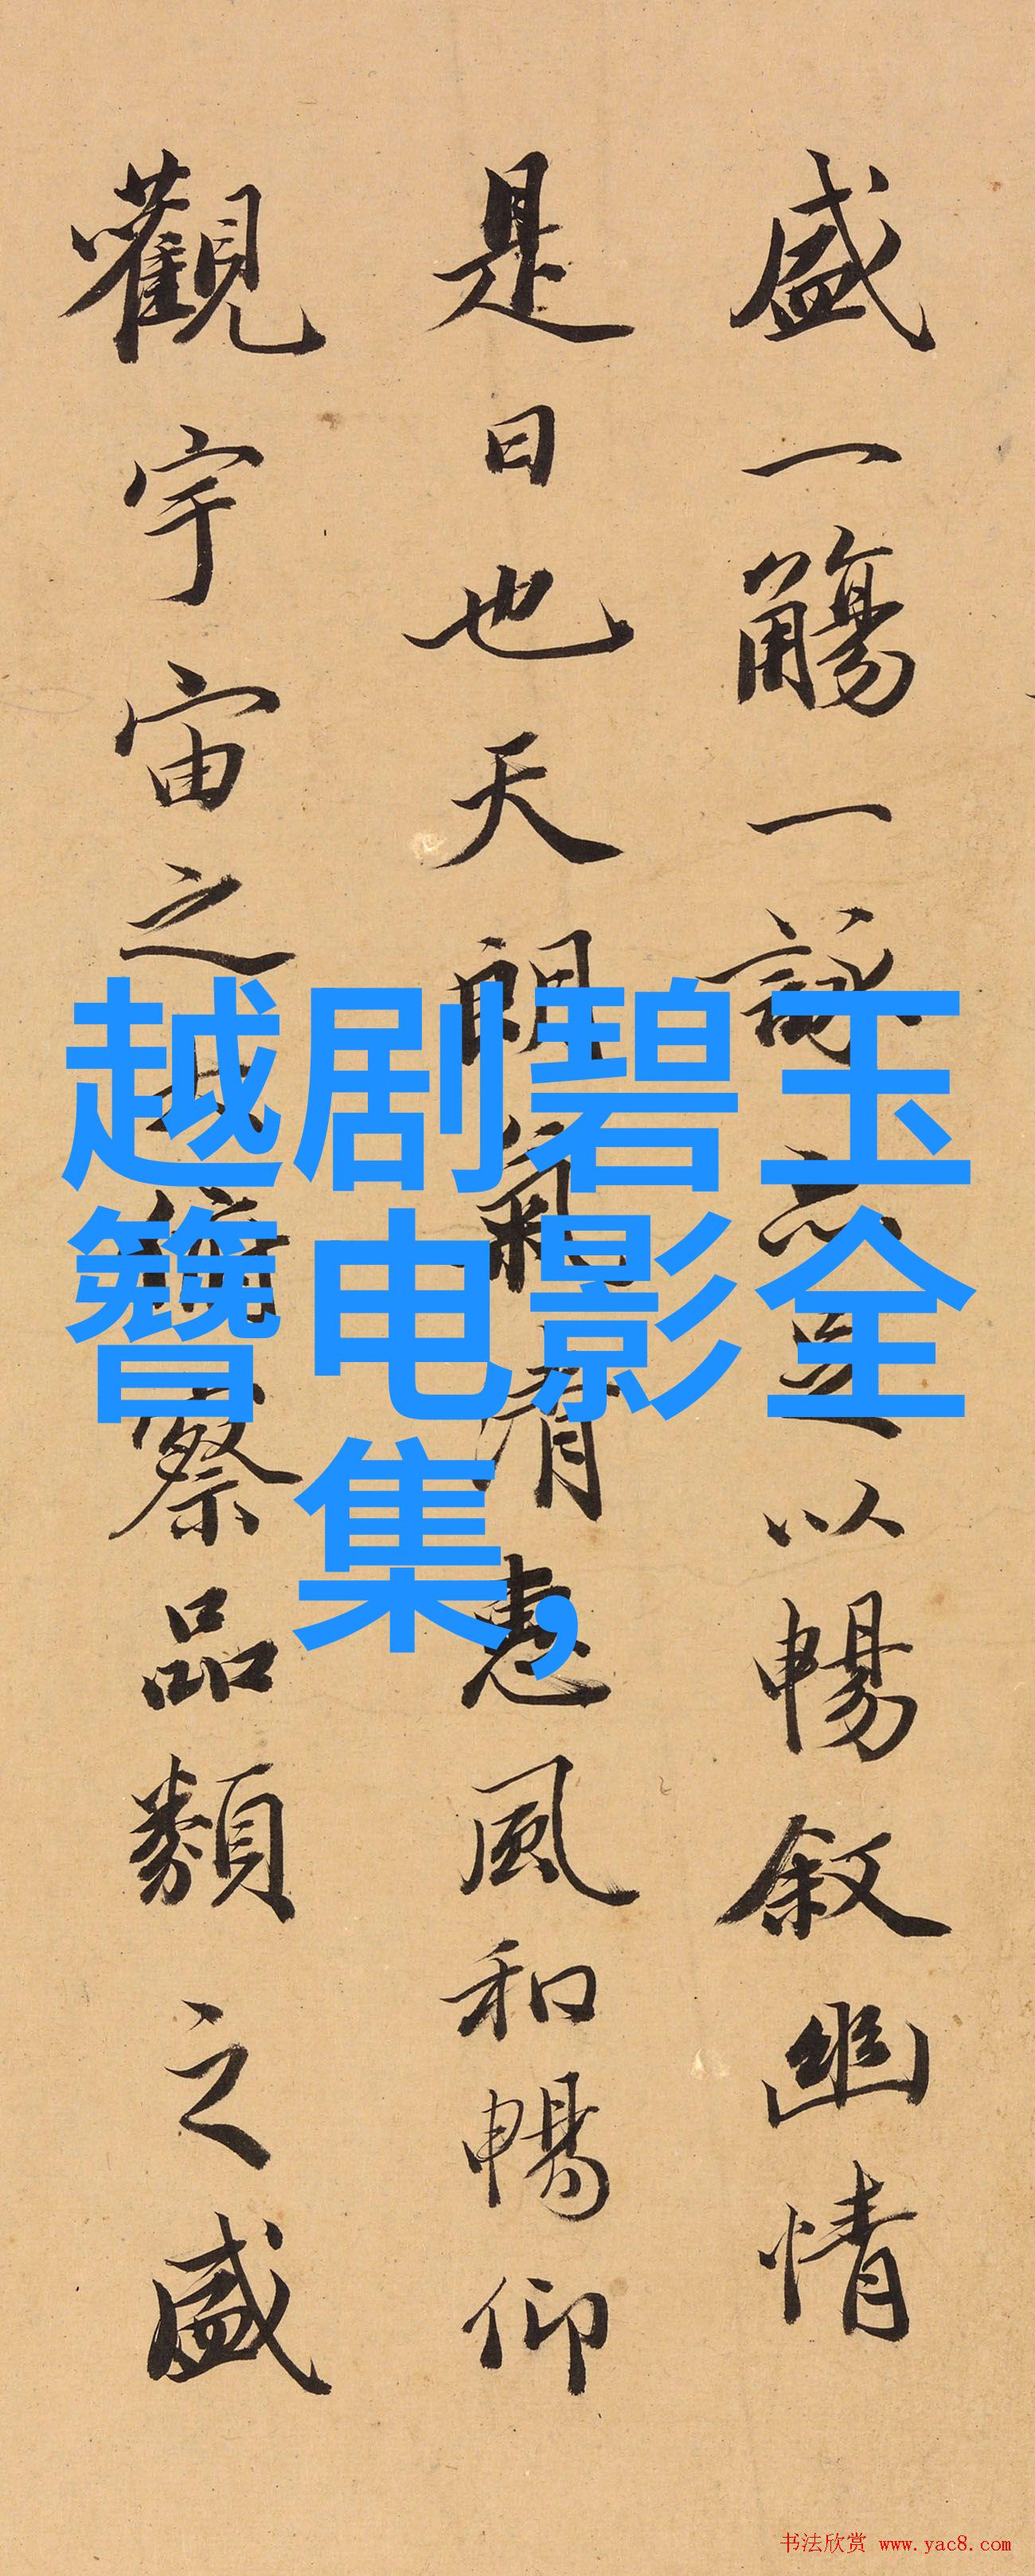 盛一觴一詠亦足以暢叙幽情
是日也天朗氣清惠風和暢仰
觀宇宙之大俯察品類之盛
越剧碧玉
簪电影全
集,
书法欣赏 www.yac8.com